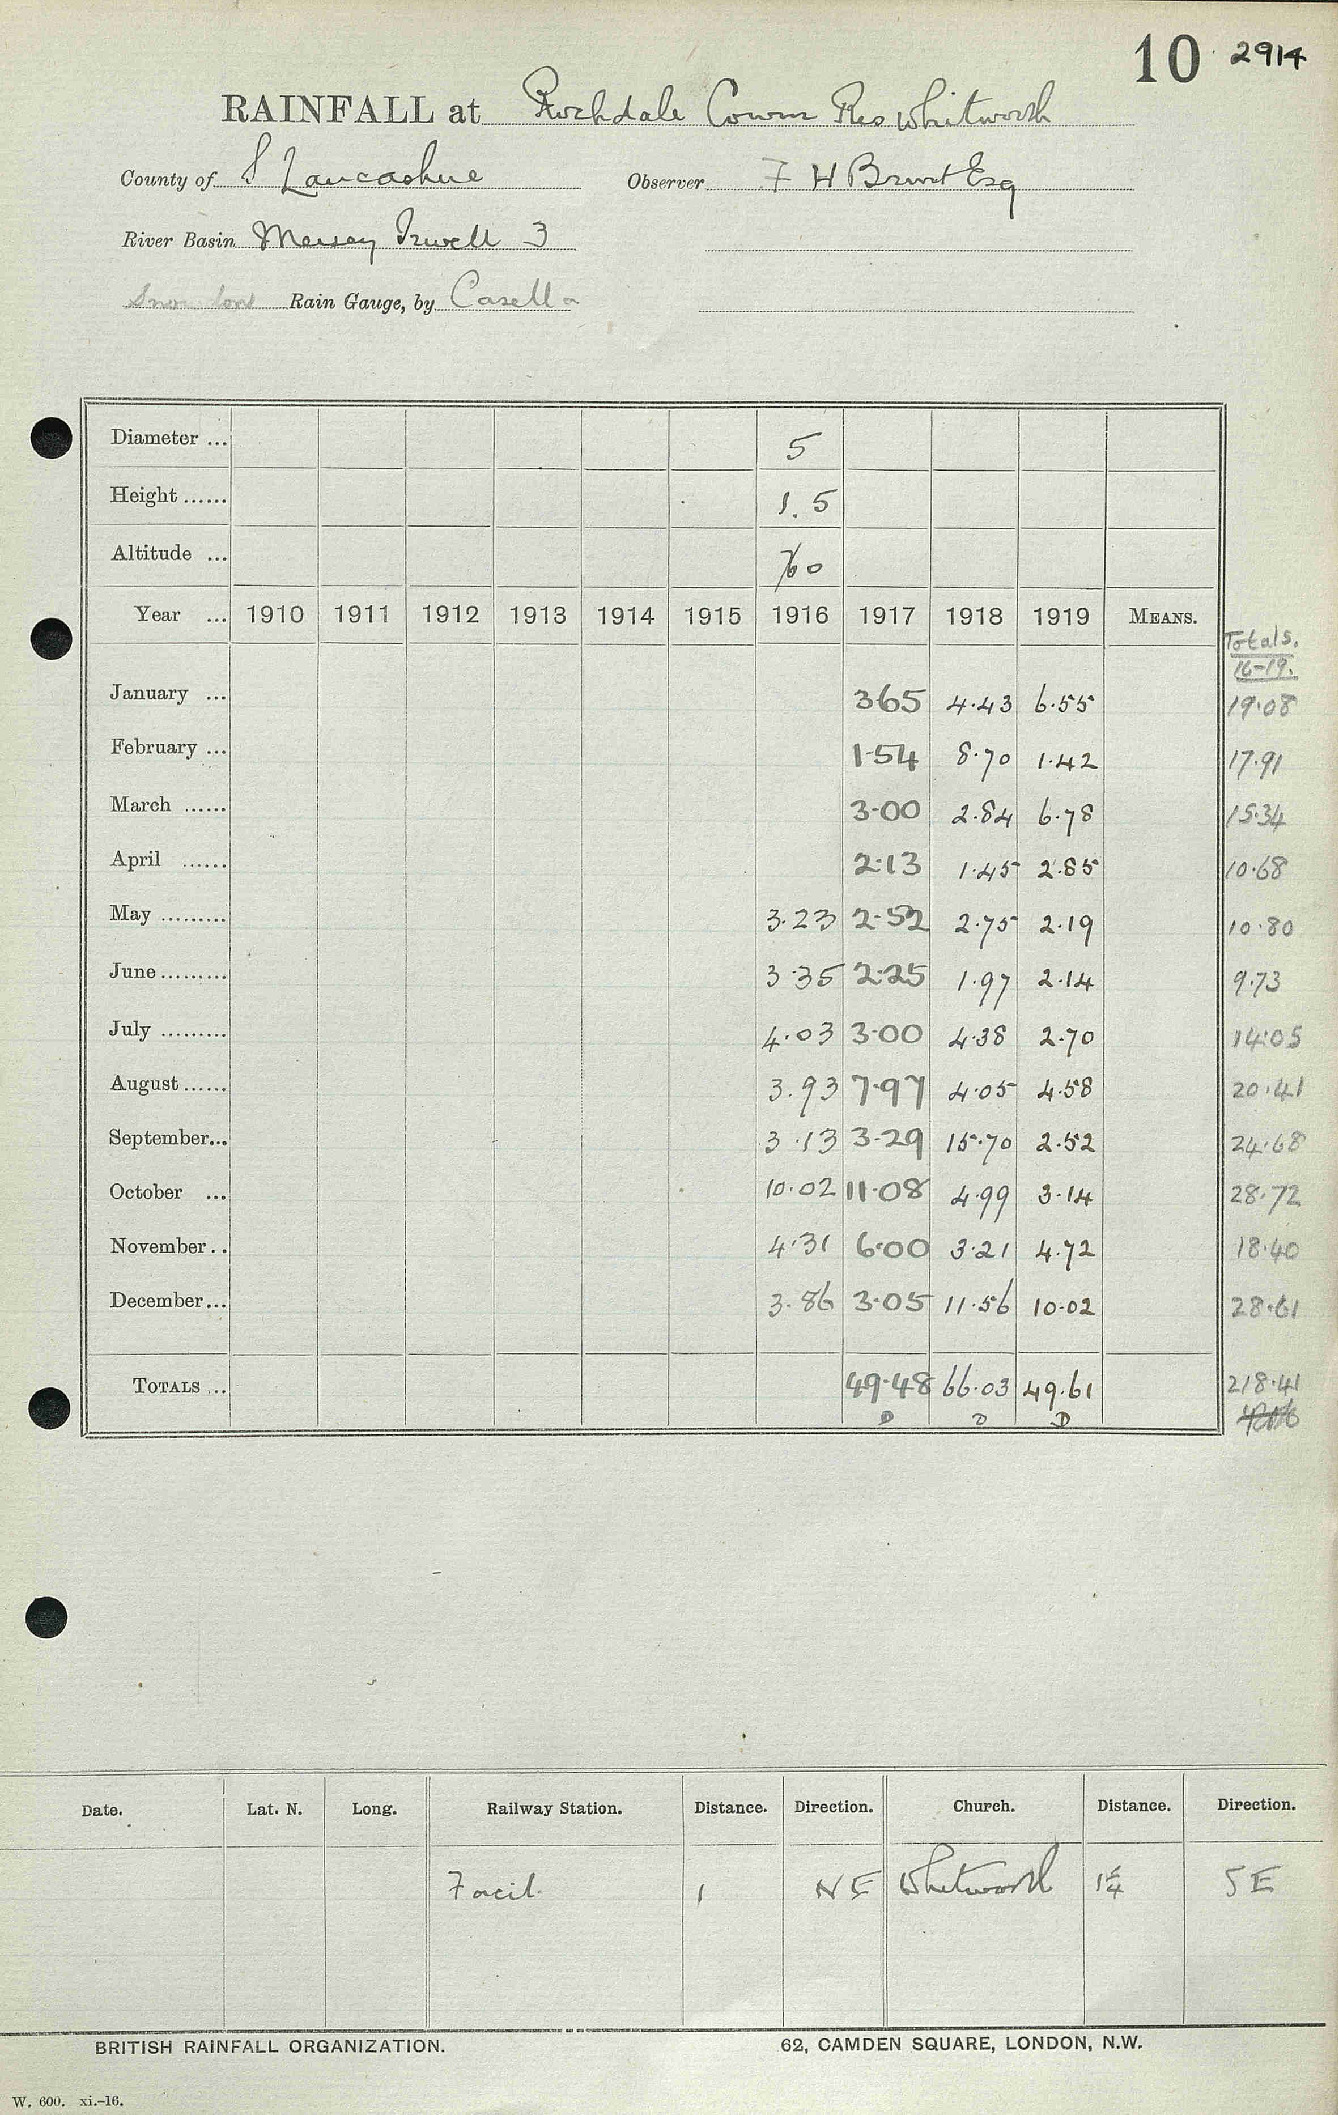 10 2914
RAINFALL at Rochdale Cowm Res Whitworth
County of S Lancashire Observer F H Esq
River Basin Mersey Irwell 3
Snowdon Rain Gauge, by Casella
Diameter ... 5
Height ...... 1.5
Altitude ... 760
Year ... 1910 1911 1912 1913 1914 1915 1916 1917 1918 1919 MEANS.
Totals.
16-19.
January ... 365 4.43 6.55 19.08
February ... 1.54 8.70 1.42 17.91
March ...... 3.00 2.84 6.78 15.34
April ...... 2.13 1.45 2.85 10.68
May ......... 3.23 2.52 2.75 2.19 10.80
June ......... 3.35 2.25 1.97 2.14 9.73
July ......... 4.03 3.00 4.38 2.70 14.05
August ...... 3.93 7.97 4.05 4.58 20.41
September... 3.13 3.29 15.70 2.52 24.68
October ... 10.02 11.08 4.99 3.14 28.72
November.. 4.31 6.00 3.21 4.72 18.40
December... 3.86 3.05 11.56 10.02 28.61
TOTALS ... 49.48 66.03 49.61 218.41
D D D
Date. Lat. N. Long. Railway Station. Distance. Direction. Church. Distance. Direction.
Facit 1 NE Whitworth 1¼ SE
BRITISH RAINFALL ORGANIZATION. 62, CAMDEN SQUARE, LONDON, N.W.
W. 600. xi.–16.